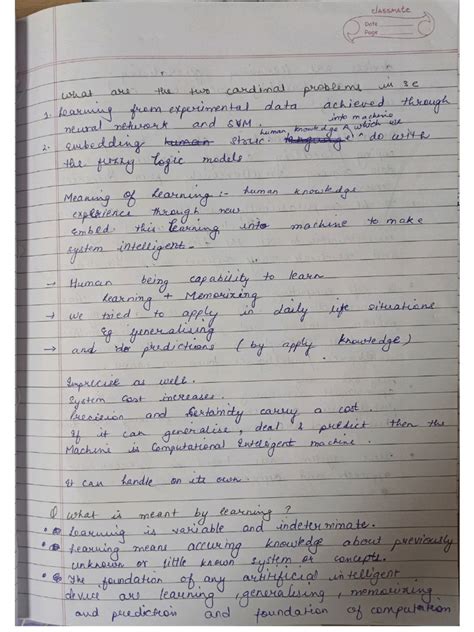 classmate
Date
Page
What are the two cardinal problems in SC
1. Learning from experimental data achieved through
neural network and SVM.
into machine
human knowledge & which we
2. Embedding human struc. do with
the fuzzy logic models
Meaning of Learning :- human knowledge
experience through new
Embed this learning into machine to make
system intelligent.
→ Human being capability to learn
Learning + Memorizing
→ We tried to apply in daily life situations
Eg generalising
→ and do predictions ( by apply knowledge)
Imprecise as well.
System cost increases.
Precision and certainty carry a cost.
If it can generalise, deal & predict then the
Machine is Computational Intelligent machine.
It can handle on its own.
Q What is meant by learning ?
• Learning is variable and indeterminate.
• Learning means accuring knowledge about previously
unknown or little known system or concepts.
• The foundation of any artificial intelligent
device are learning, generalising, memorizing
and prediction and foundation of computation